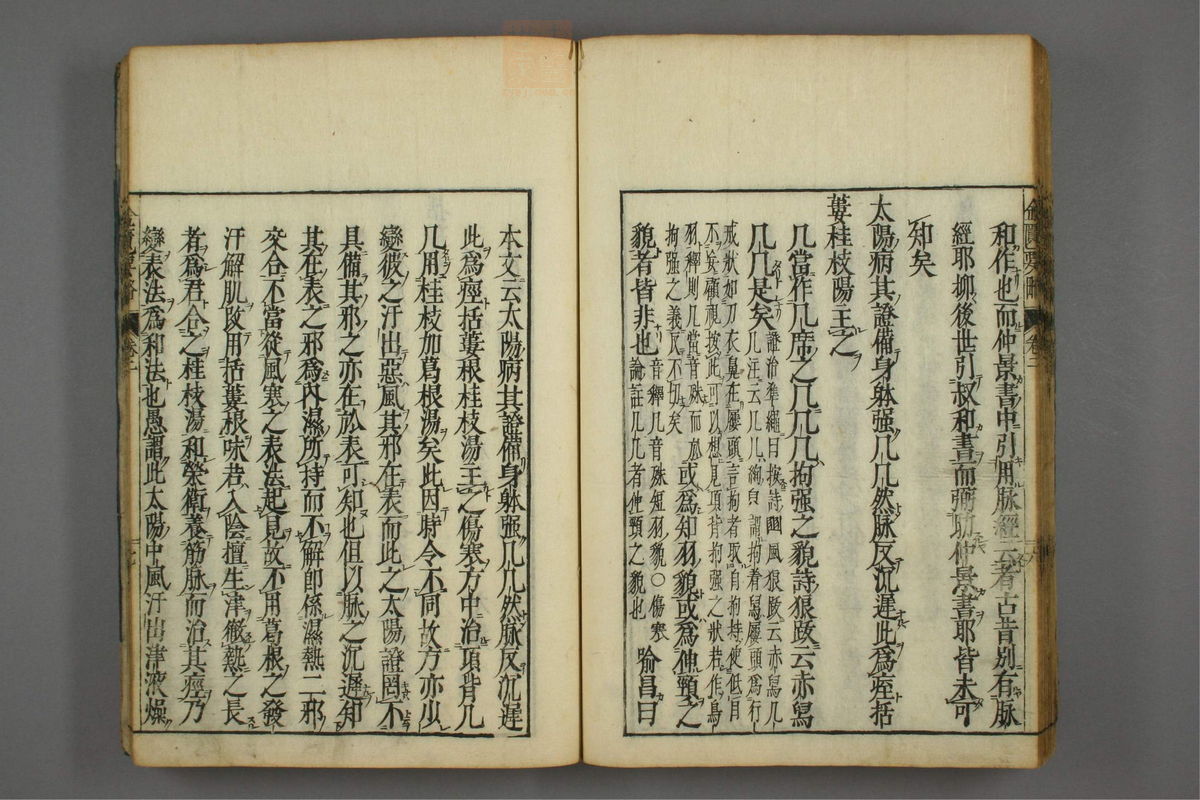 和作也而仲景書中引用脉經云者古昔別有脉
經耶抑後世引叔和書而弼助仲景書耶皆未可
知矣
太陽病其證備身躰强几几然脉反沉遲此爲痙括
蔞桂枝陽王之
几當作几席之几几几拘强之貌詩狼跋云赤舄
几几是矣
證治準繩曰按詩豳風狼跋云赤舄几
几注云几几絢貌謂拘着舄屨頭爲行
戒狀如刀衣鼻在屨頭言拘者取自拘持使低目
不妄顧視按此可以想見項背拘强之狀若作鳥
羽釋則几當音殊而
拘强之義瓦不切矣
或爲知羽貌或爲伸頸之
貌者皆非也
音釋几音殊短羽貌〇傷寒
論註几几者伸頸之貌也
喻昌曰
本文云太陽病其證備身躰强几几然脉反沉遲
此爲痙括蔞根桂枝湯主之傷寒方中治項背几
几用桂枝加葛根湯矣此因時令不同故方亦少
變彼之汗出惡風其邪在表而此之太陽證罔不
具備其邪之亦在於表可知也但以脉之沉遲知
其在表之邪爲內濕所持而不解即係濕熱二邪
交合不當從風寒之表法起見故不用葛根之發
汗解肌改用括蔞根味苦入陰擅生津徹熱之長
者爲君合之桂枝湯和榮衛養筋脉而治其痙乃
變表法爲和法也愚謂此太陽中風汗出津液燥
金匱要略
卷二